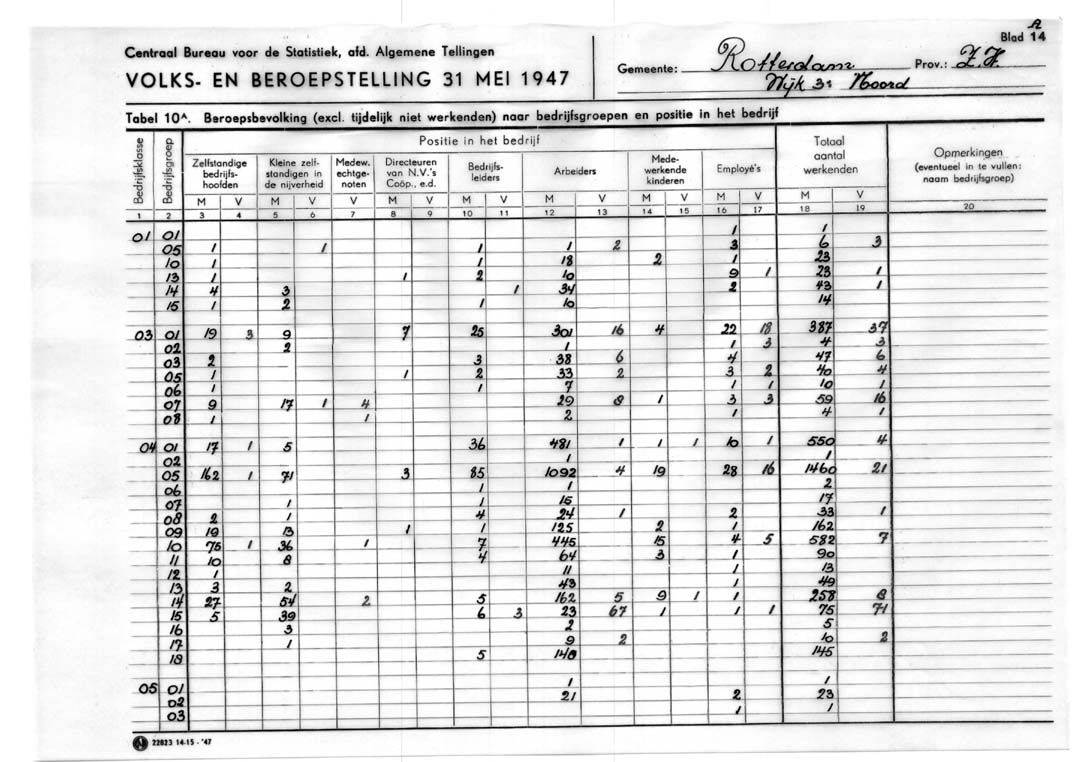 A
Blad 14
Centraal Bureau voor de Statistiek, afd. Algemene Tellingen
VOLKS- EN BEROEPSTELLING 31 MEI 1947
Gemeente: Rotterdam Prov.: Z.H.
Wijk 31 Noord
Tabel 10A. Beroepsbevolking (excl. tijdelijk niet werkenden) naar bedrijfsgroepen en positie in het bedrijf
Bedrijfsklasse Bedrijfsgroep Positie in het bedrijf Totaal aantal werkenden Opmerkingen (eventueel in te vullen: naam bedrijfsgroep)
Zelfstandige bedrijfs-hoofden Kleine zelf-standigen in de nijverheid Medew. echtge-noten Directeuren van N.V.'s Coöp., e.d. Bedrijfs-leiders Arbeiders Mede-werkende kinderen Employé's
M V M V V M V M V M V M V M V M V
1 2 3 4 5 6 7 8 9 10 11 12 13 14 15 16 17 18 19 20
01 01 1 1
05 1 1 1 1 2 3 6 3
10 1 1 18 2 1 23
13 1 1 2 10 9 1 23 1
14 4 3 1 34 2 43 1
15 1 2 1 10 14
03 01 19 3 9 7 25 301 16 4 22 18 387 37
02 2 1 1 3 4 3
03 2 3 38 6 4 47 6
05 1 1 2 33 2 3 2 40 4
06 1 1 7 1 1 10 1
07 9 17 1 4 29 8 1 3 3 59 16
08 1 1 2 1 4 1
04 01 17 1 5 36 481 1 1 1 10 1 550 4
02 1 1
05 162 1 71 3 85 1092 4 19 28 16 1460 21
06 1 1 2
07 1 1 15 17
08 2 1 4 24 1 2 33 1
09 19 13 1 1 125 2 1 162
10 75 1 36 1 7 445 15 4 5 582 7
11 10 8 4 64 3 1 90
12 1 11 1 13
13 3 2 43 1 49
14 27 54 2 5 162 5 9 1 1 258 8
15 5 39 6 3 23 67 1 1 1 75 71
16 3 2 5
17 1 9 2 10 2
18 5 140 145
05 01 1 1
02 21 2 23
03 1 1
22823 14-15 - '47